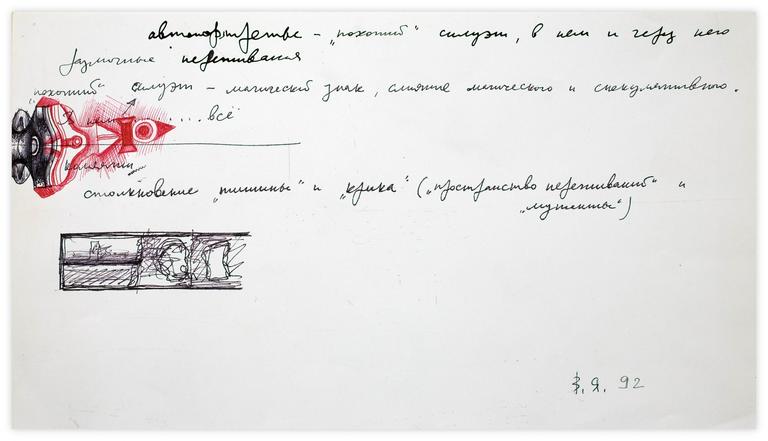 автопортреты – „похожий“ силуэт, в нем и через него
различные переживания
„похожий“ силуэт – магический знак, слияние магического и спекулятивного.
В нем ..... всё
столкновение „тишины“ и „крика“ („пространство переживаний“ и
„мутанты“)
В. Я. 92